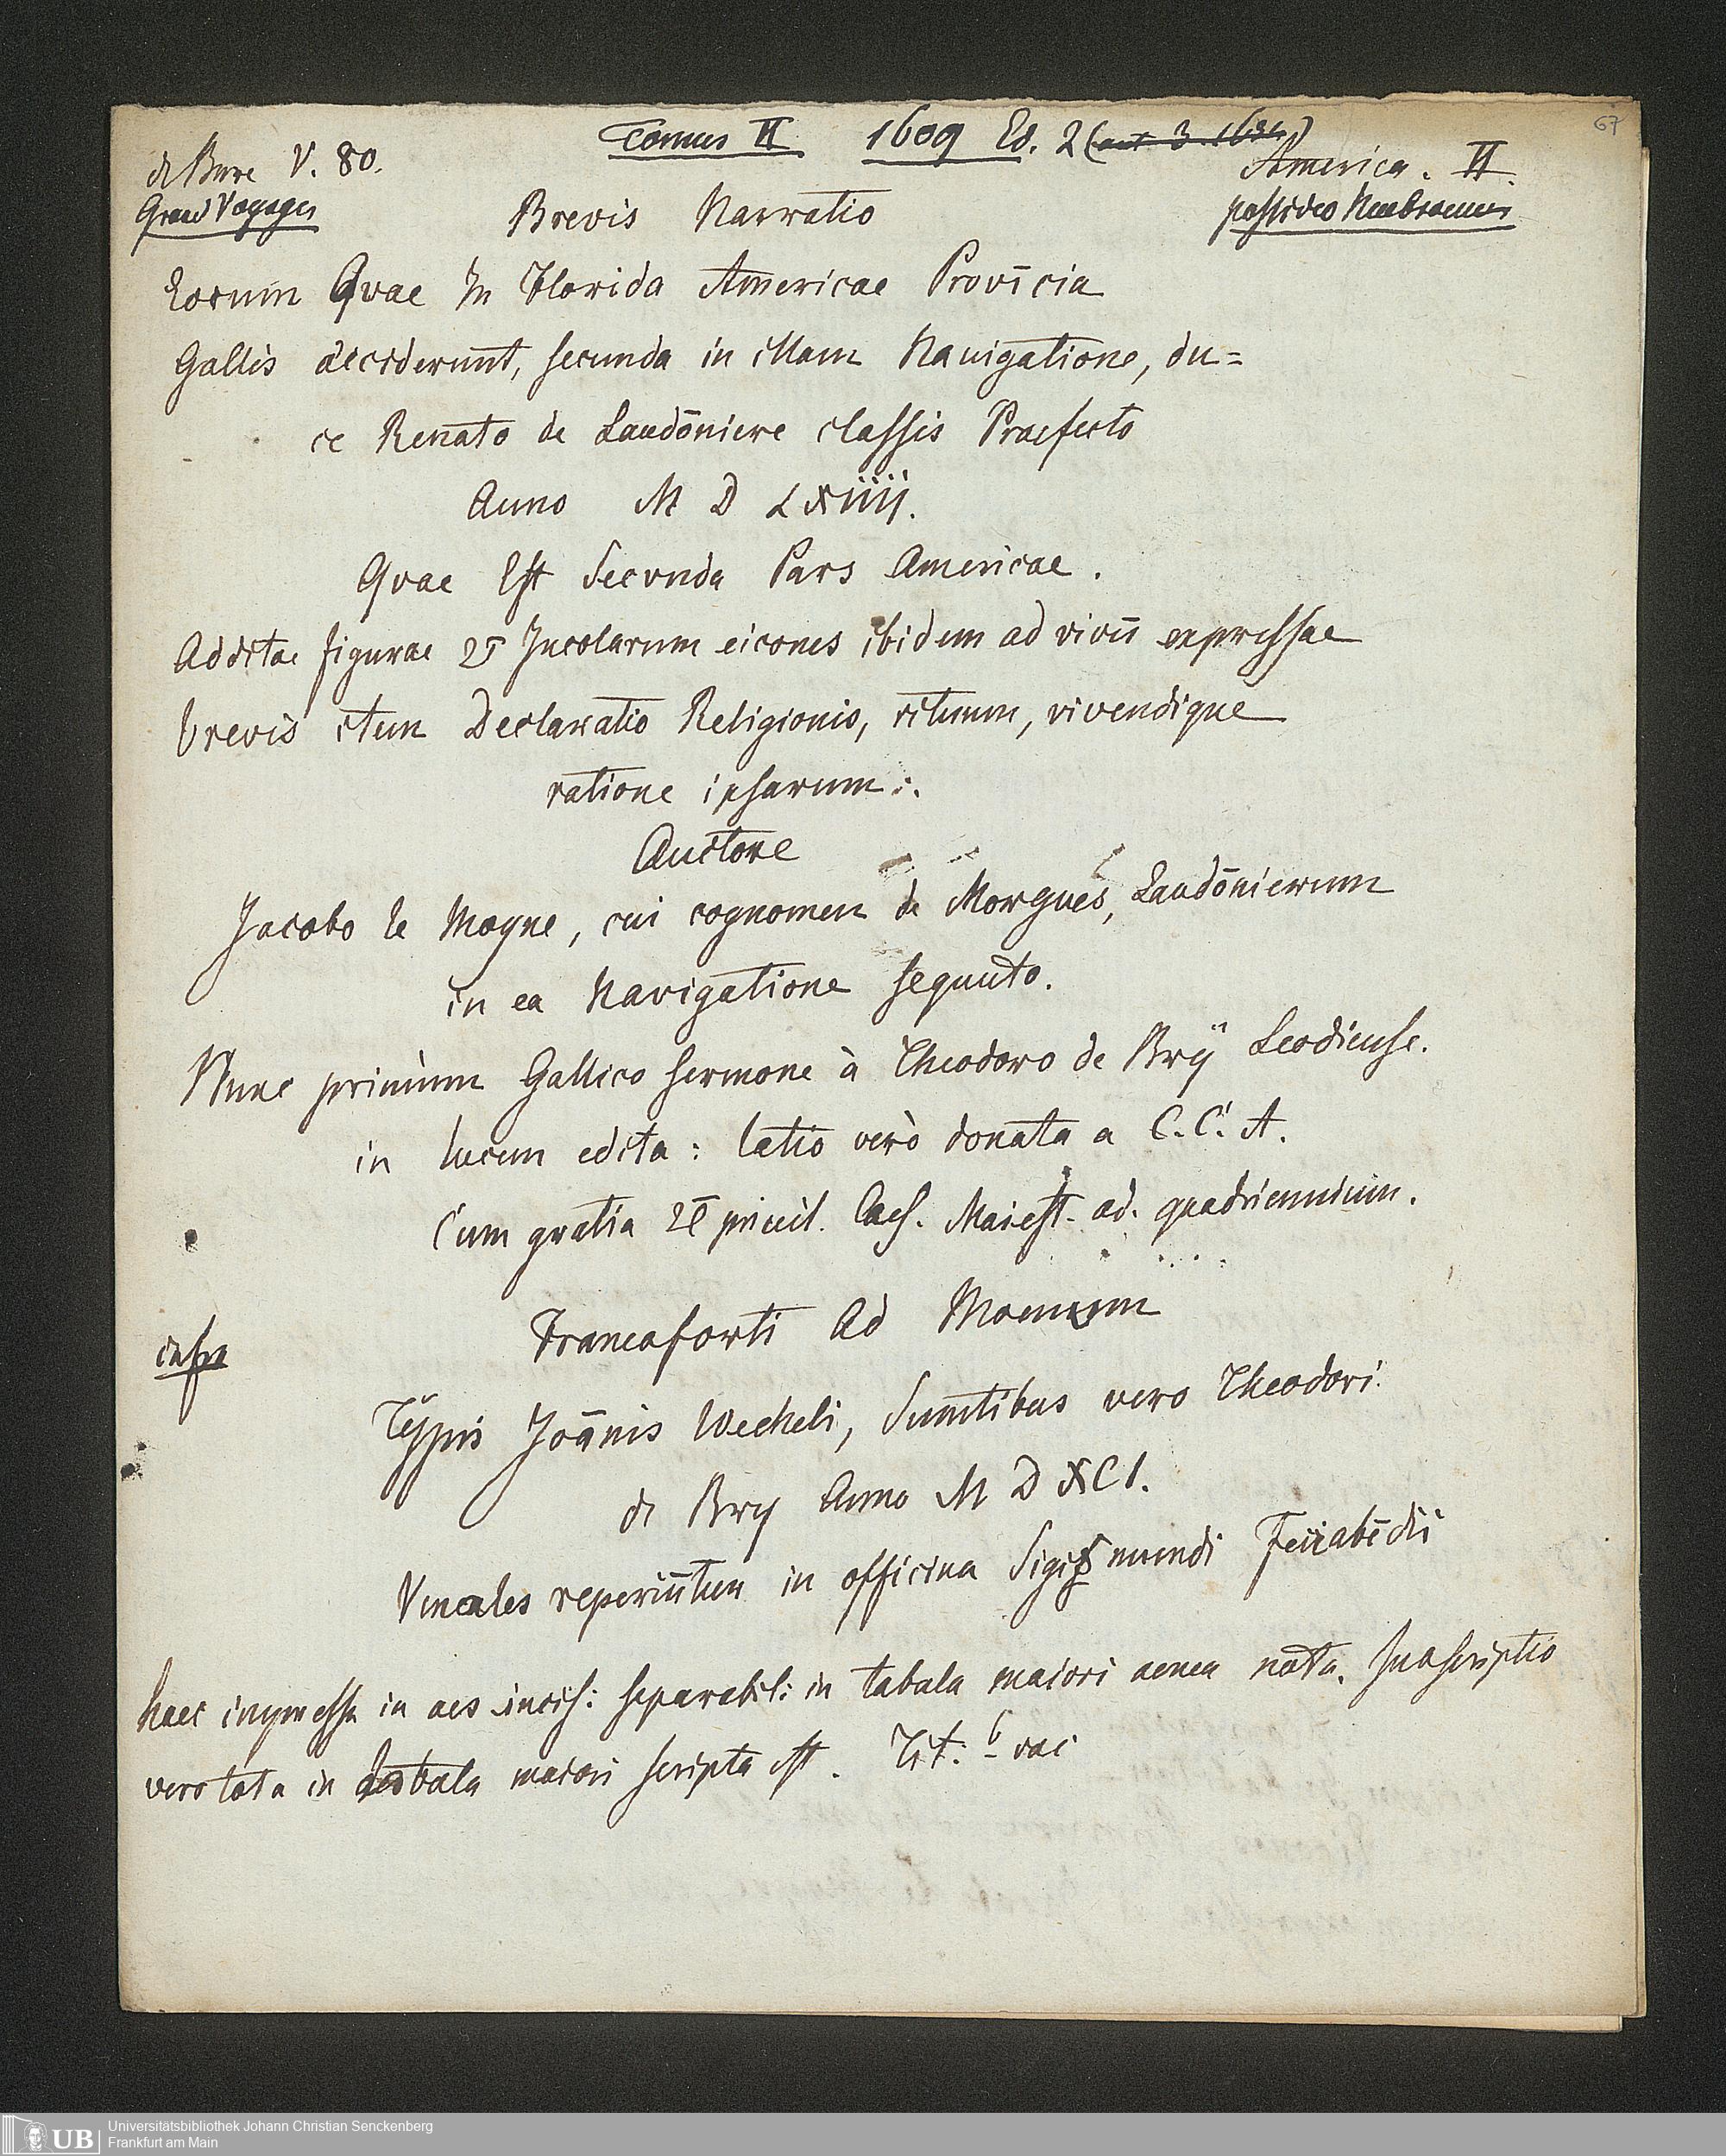 67
Tomus II 1609 Ed. 2 (aut 3. 1634)
de Bure V. 80. America. II.
Grand Voyages possideo
Brevis Narratio
Eorum Qvae In Florida Americae Provīcia
Gallis acciderunt, secunda in illam Nauigatione, du=
ce Renato de Laudōniere classis Praefecto
Anno M D LXIIII.
Qvae Est Secvnda Pars Americae.
Additae figurae & Incolarum eicones ibidem ad vivū expressae
brevis item Declaratio Religionis, rituum, vivendique
ratione ipsarum:.
Auctore
Jacobo le Moyne, cui cognomen de Morgues, Laudōnierum
in ea Navigatione sequuto.
Nunc primùm Gallico sermone à Theodoro de Bry Leodiense.
in lucem edita: latio verò donata a C. C. A.
Cum gratia & priuil. Caes. Maiest. ad. quadriennium.
Francoforti Ad Moenum
infra
Typis Joānis Wecheli, Sumtibus vero Theodori
de Bry Anno M D XCI.
Venales reperiūtur in officina Sigismundi Feirabēdii
haec impressa in aes incis: separabil: in tabula maiori aenea nota. Inscriptio
vero tota in tabula maiori scripta est. Tit. b vac
Universitätsbibliothek Johann Christian Senckenberg
UB Frankfurt am Main